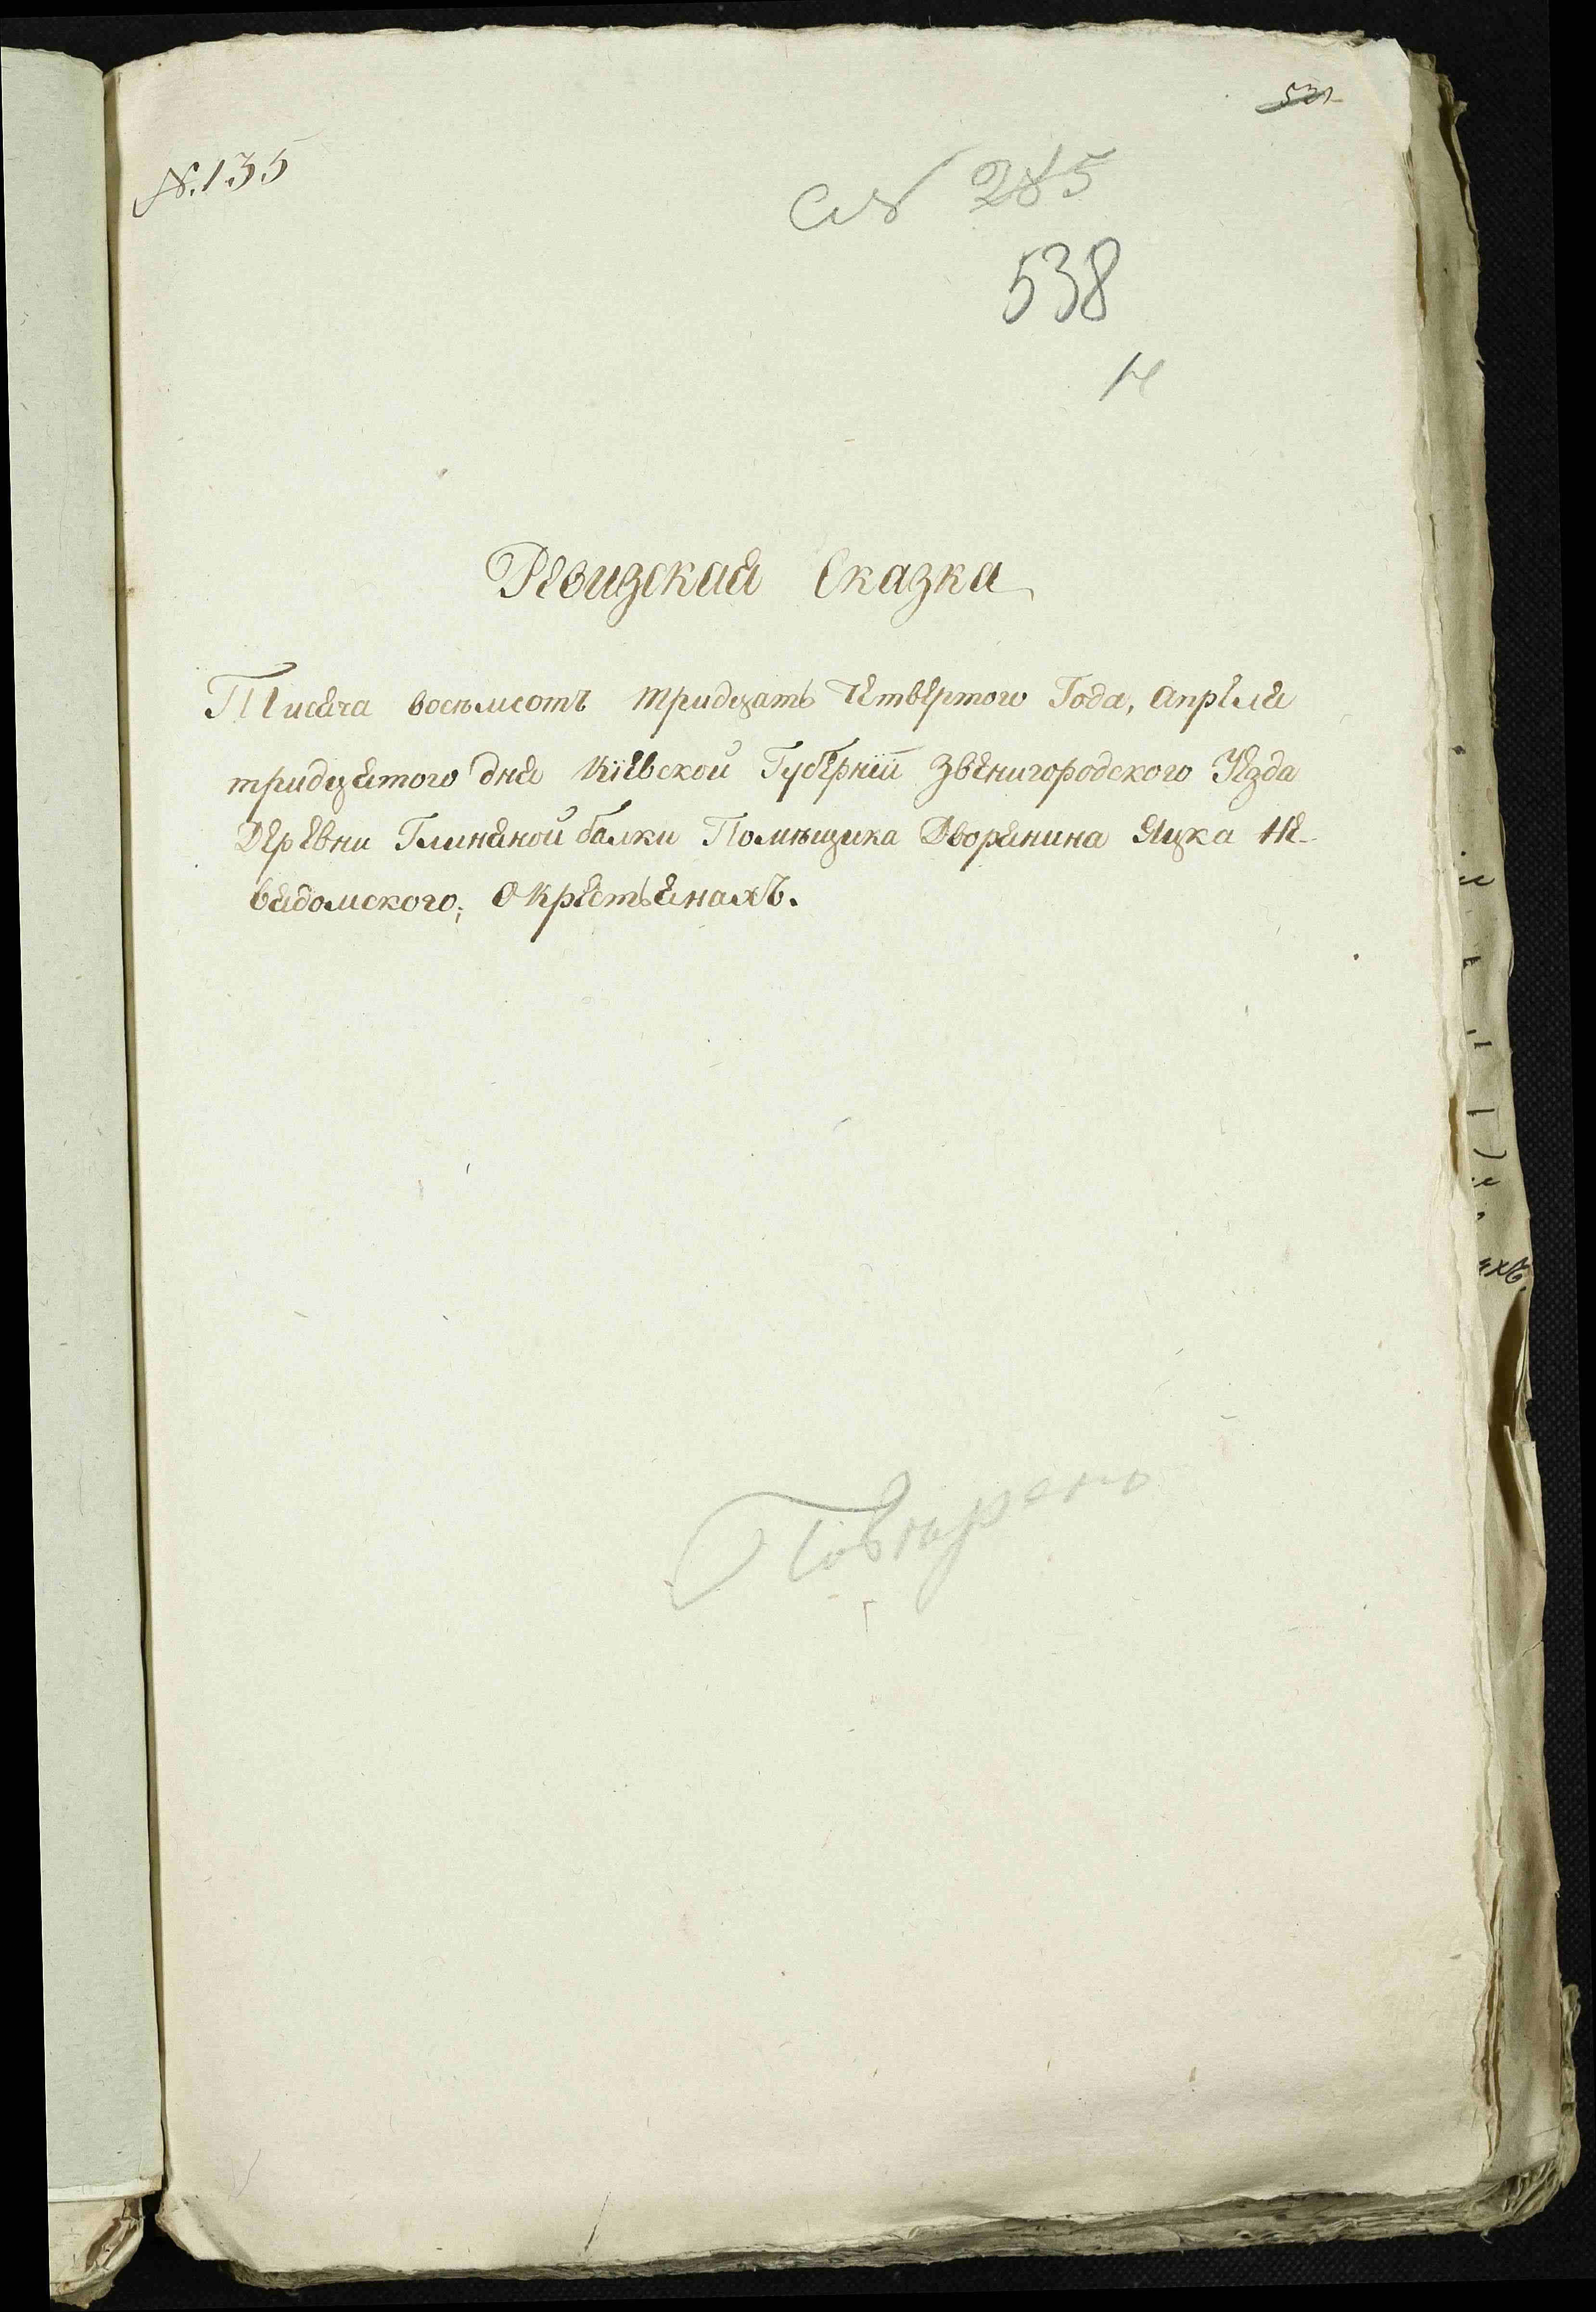 531
N. 135
285
538
Ревизская Сказка
Тисяча восемсотъ тридцать Четвертого Года, Апреля
тридцятого дня Кіевской Губерніи Звенигородского Уезда
Деревни Глиняной балки Помѣщика Дворянина Яцка Не-
вядомского; О Крестьянахъ.